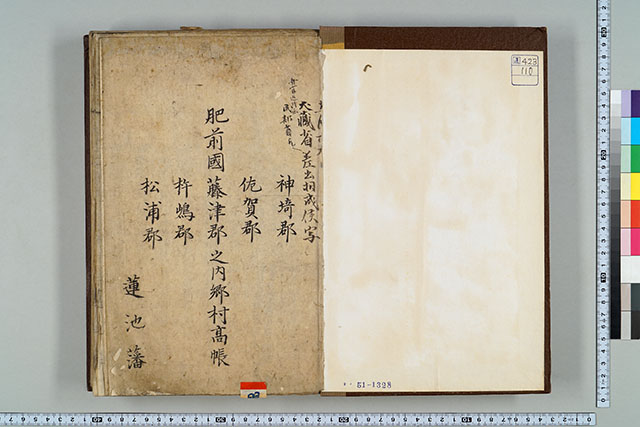 大蔵省差出相成候写
神埼郡
佐賀郡
肥前國藤津郡之内郷村高帳
杵嶋郡
松浦郡
蓮池藩
423
110
51-1328